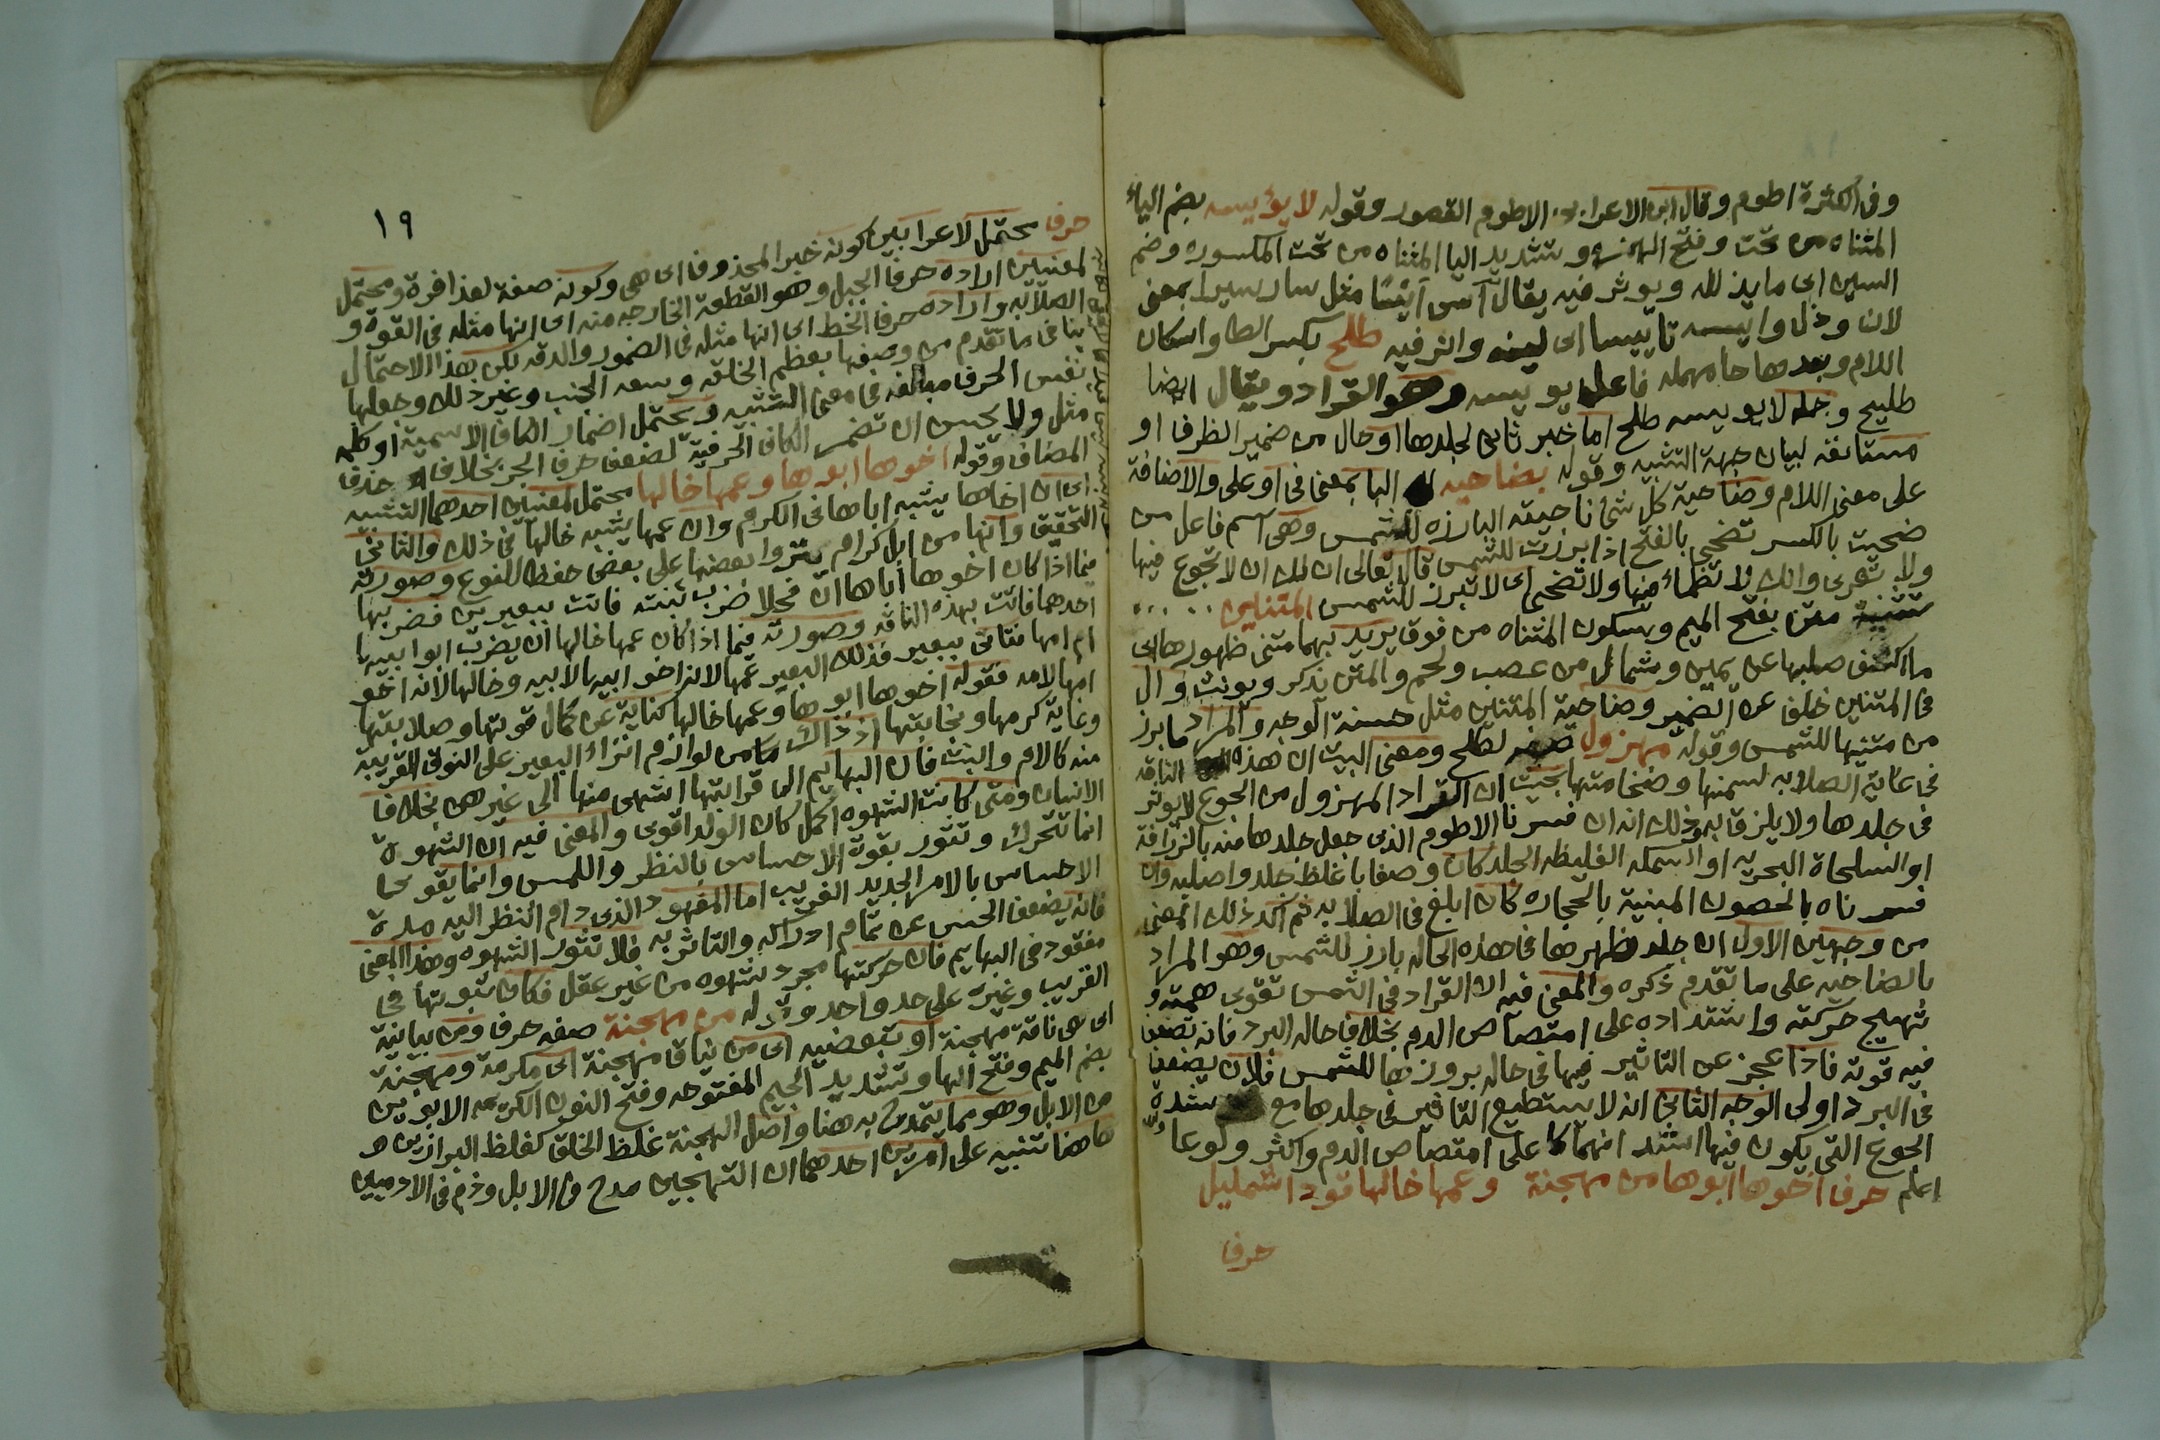 وفى الكثرة اطوم وقال ابن الاعرابى الاطوم القصور وقوله لا يؤيسه بضم الياء
المثناه من تحت وفتح الهمزة وتشديد اليا المثناه من تحت المكسوره وضم
السين اى ما يذلله ويوثر فيه يقال آس ايسًا مثل سار سيرا بمعنى
لان وذل وايسه تاييسا اى لينه واثر فيه طلح بكسر الطا واسكان
اللام وبعدها حا مهمله فاعل يويسه وهو القراد ويقال ايضا
طليح وجمله لا يويسه طلح اما خبر ثانى لجلدها او حال من ضمير الظرف او
مستانفه لبيان جهة التشبيه وقوله بضاحيه البا بمعنى فى او على والاضافة
على معنى اللام وضاحية كل شئ ناحيته البارزه للشمس وهى اسم فاعل من
ضحيت بالكسر تضحى بالفتح اذا برزت للشمس قال تعالى ان لك ان لا تجوع فيها
ولا تعرى وانك لا تظماء فيها ولا تضحى اى لا تبرز للشمس المتنين
تثنية متن بفتح الميم وسكون المثناه من فوق يريد بهما متنى ظهورها اى
ما اكتنف صلبها عن يمين وشمال من عصب ولحم والمتن يذكر ويونث وال
فى المتنين خلف عن الضمير وضاحية المتنين مثل حسنة الوجه والمراد ما برز
من متنيها للشمس وقوله مهزول صفه لطلح ومعنى البيت ان هذه الناقه
فى غاية الصلابه لسمنها وضخامتها بحيث ان القراد المهزول من الجوع لا يوثر
فى جلدها ولا يلزق به وذلك انه ان فسرنا الاطوم الذى جعل جلدها منه بالزرافة
او السلحاة البحريه او السمكه الغليظه الجلد كان وصفا باغلظ جلد واصلبه وان
فسرناه بالحصون المبنية بالحجاره كان ابلغ فى الصلابه ثم اكد ذلك المعنى
من وجهين الاول ان جلد ظهرها فى هذه الحاله بارز للشمس وهو المراد
بالضاحيه على ما تقدم ذكره والمعنى فيه ان القراد فى الشمس تقوى همته و
تهيج حركته واشتداده على امتصاص الدم بخلاف حاله البرد فانه تضعف
فيه قوته فاذا عجز عن التاثير فيها فى حاله بروزها للشمس فلان يضعف
فى البرد اولى الوجه الثانى انه لا يستطيع التاثير فى جلدها مع شدة
الجوع التى يكون فيها اشتد انهماكا على امتصاص الدم واكثر ولوعا
اعلم حرف اخوها ابوها من مهجنة وعمها خالها قودا شمليل
حرف
١٩
حرف محتمل لاعرابين كونه خبر المحذوف اى هى وكونه صفة لعذافرة ومحتمل
لمعنيين ارادة حرف الجبل وهو القطعة الخارجه منه اى انها مثله فى القوة و
الصلابه وارادة حرف الخط اى انها مثله فى الضمور والدقه لكن بهذا الاحتمال
ينافى ما تقدم من وصفها بعظم الخلقه وسعه الجنب وغير ذلك وجعلها
نفس الحرف مبالغه فى معنى التشبيه ويحتمل اضمار الكاف الاسمية او كلمه
مثل ولا يحسن ان تضمر الكاف الحرفية لضعف حرف الجر بخلاف حذف
المضاف وقوله اخوها ابوها وعمها خالها محتمل لمعنيين احدهما التشبيه
اى ان اخاها يشبه اباها فى الكرم وان عمها يشبه خالها فى ذلك والثانى
التحقيق وانها من ابل كرام ينزوا بعضها على بعض حفظا للنوع وصورته
فيما اذا كان اخوها اباها ان فحلا ضرب بنته فاتت ببعيرين فضربها
احدهما فاتت بهذه الناقه وصورته فيما اذا كان عمها خالها ان يضرب ابو ابيها
ام امها فتاتى ببعير فذلك البعير عمها لانه اخو ابيها لابيه وخالها لانه اخو
امها لامه فقوله اخوها ابوها وعمها خالها كناية عن كمال قوتها وصلابتها
وغاية كرمها ونجابتها اذ ذاك مامن لوازم انزاء البعير على النوق القريبه
منه كالام والبنت فان البهائيم الى قرابتها اشهى منها الى غيرهن بخلاف
الانسان ومتى كانت الشهوه اكمل كان الولد اقوى والمعنى فيه ان الشهوة
انما تتحرك وتثور بقوة الاحساس بالنظر واللمس وانما يقوى
الاحساس بالامر الجديد الغريب اما المعهود الذى دام النظر اليه مدة
فانه يضعف الحس عن تمام ادراكه والتاثر به فلا تثور الشهوه وهذا المعنى
مفقود فى البهايم فان حركتها مجرد شهوه من غير عقل فكان ثبوتها فى
القريب وغيره على حد واحد وقوله من مهجنة صفه حرف ومن بيانية
اى هى ناقة مهجنة او تبعضيه اى من نياق مهجنة اى مكرمة ومهجنة
بضم الميم وفتح الها وتشديد الجيم المفتوحه وفتح النون الكريمه الابوين
من الابل وهو مما يتمدح به هنا واصل الهجنة غلظ الخلق كغلظ البراذين و
هاهنا تنبيه على امرين احدهما ان التهجين مدح فى الابل وذم فى الادميين